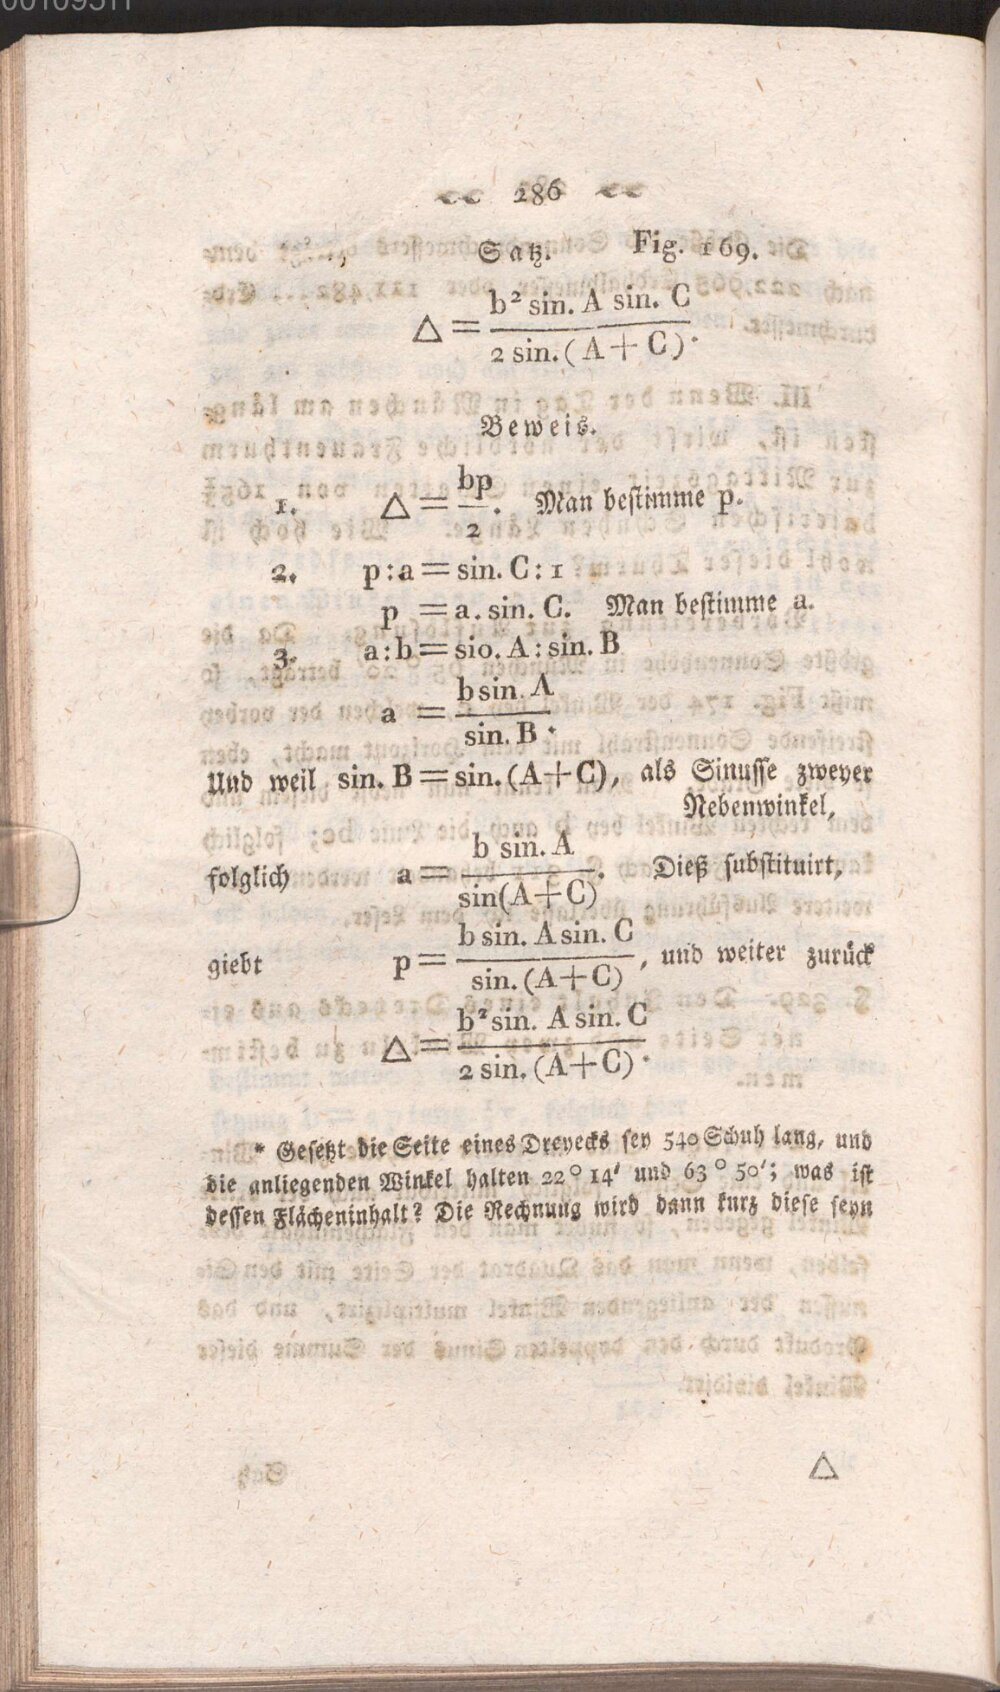 286
Satz. Fig. 169.
△ = b² sin. A sin. C / 2 sin. (A+C).
Beweis.
1. △ = bp / 2. Man bestimme p.
2. p : a = sin. C : 1
p = a. sin. C. Man bestimme a.
3. a : b = sio. A : sin. B
a = b sin. A / sin. B.
Und weil sin. B = sin. (A+C), als Sinusse zweyer
Nebenwinkel,
folglich a = b sin. A / sin(A+C). Dieß substituirt,
giebt p = b sin. A sin. C / sin. (A+C), und weiter zurück
△ = b² sin. A sin. C / 2 sin. (A+C).
* Gesetzt die Seite eines Dreyecks sey 540 Schuh lang, und
die anliegenden Winkel halten 22° 14' und 63° 50'; was ist
dessen Flächeninhalt? Die Rechnung wird dann kurz diese seyn
△